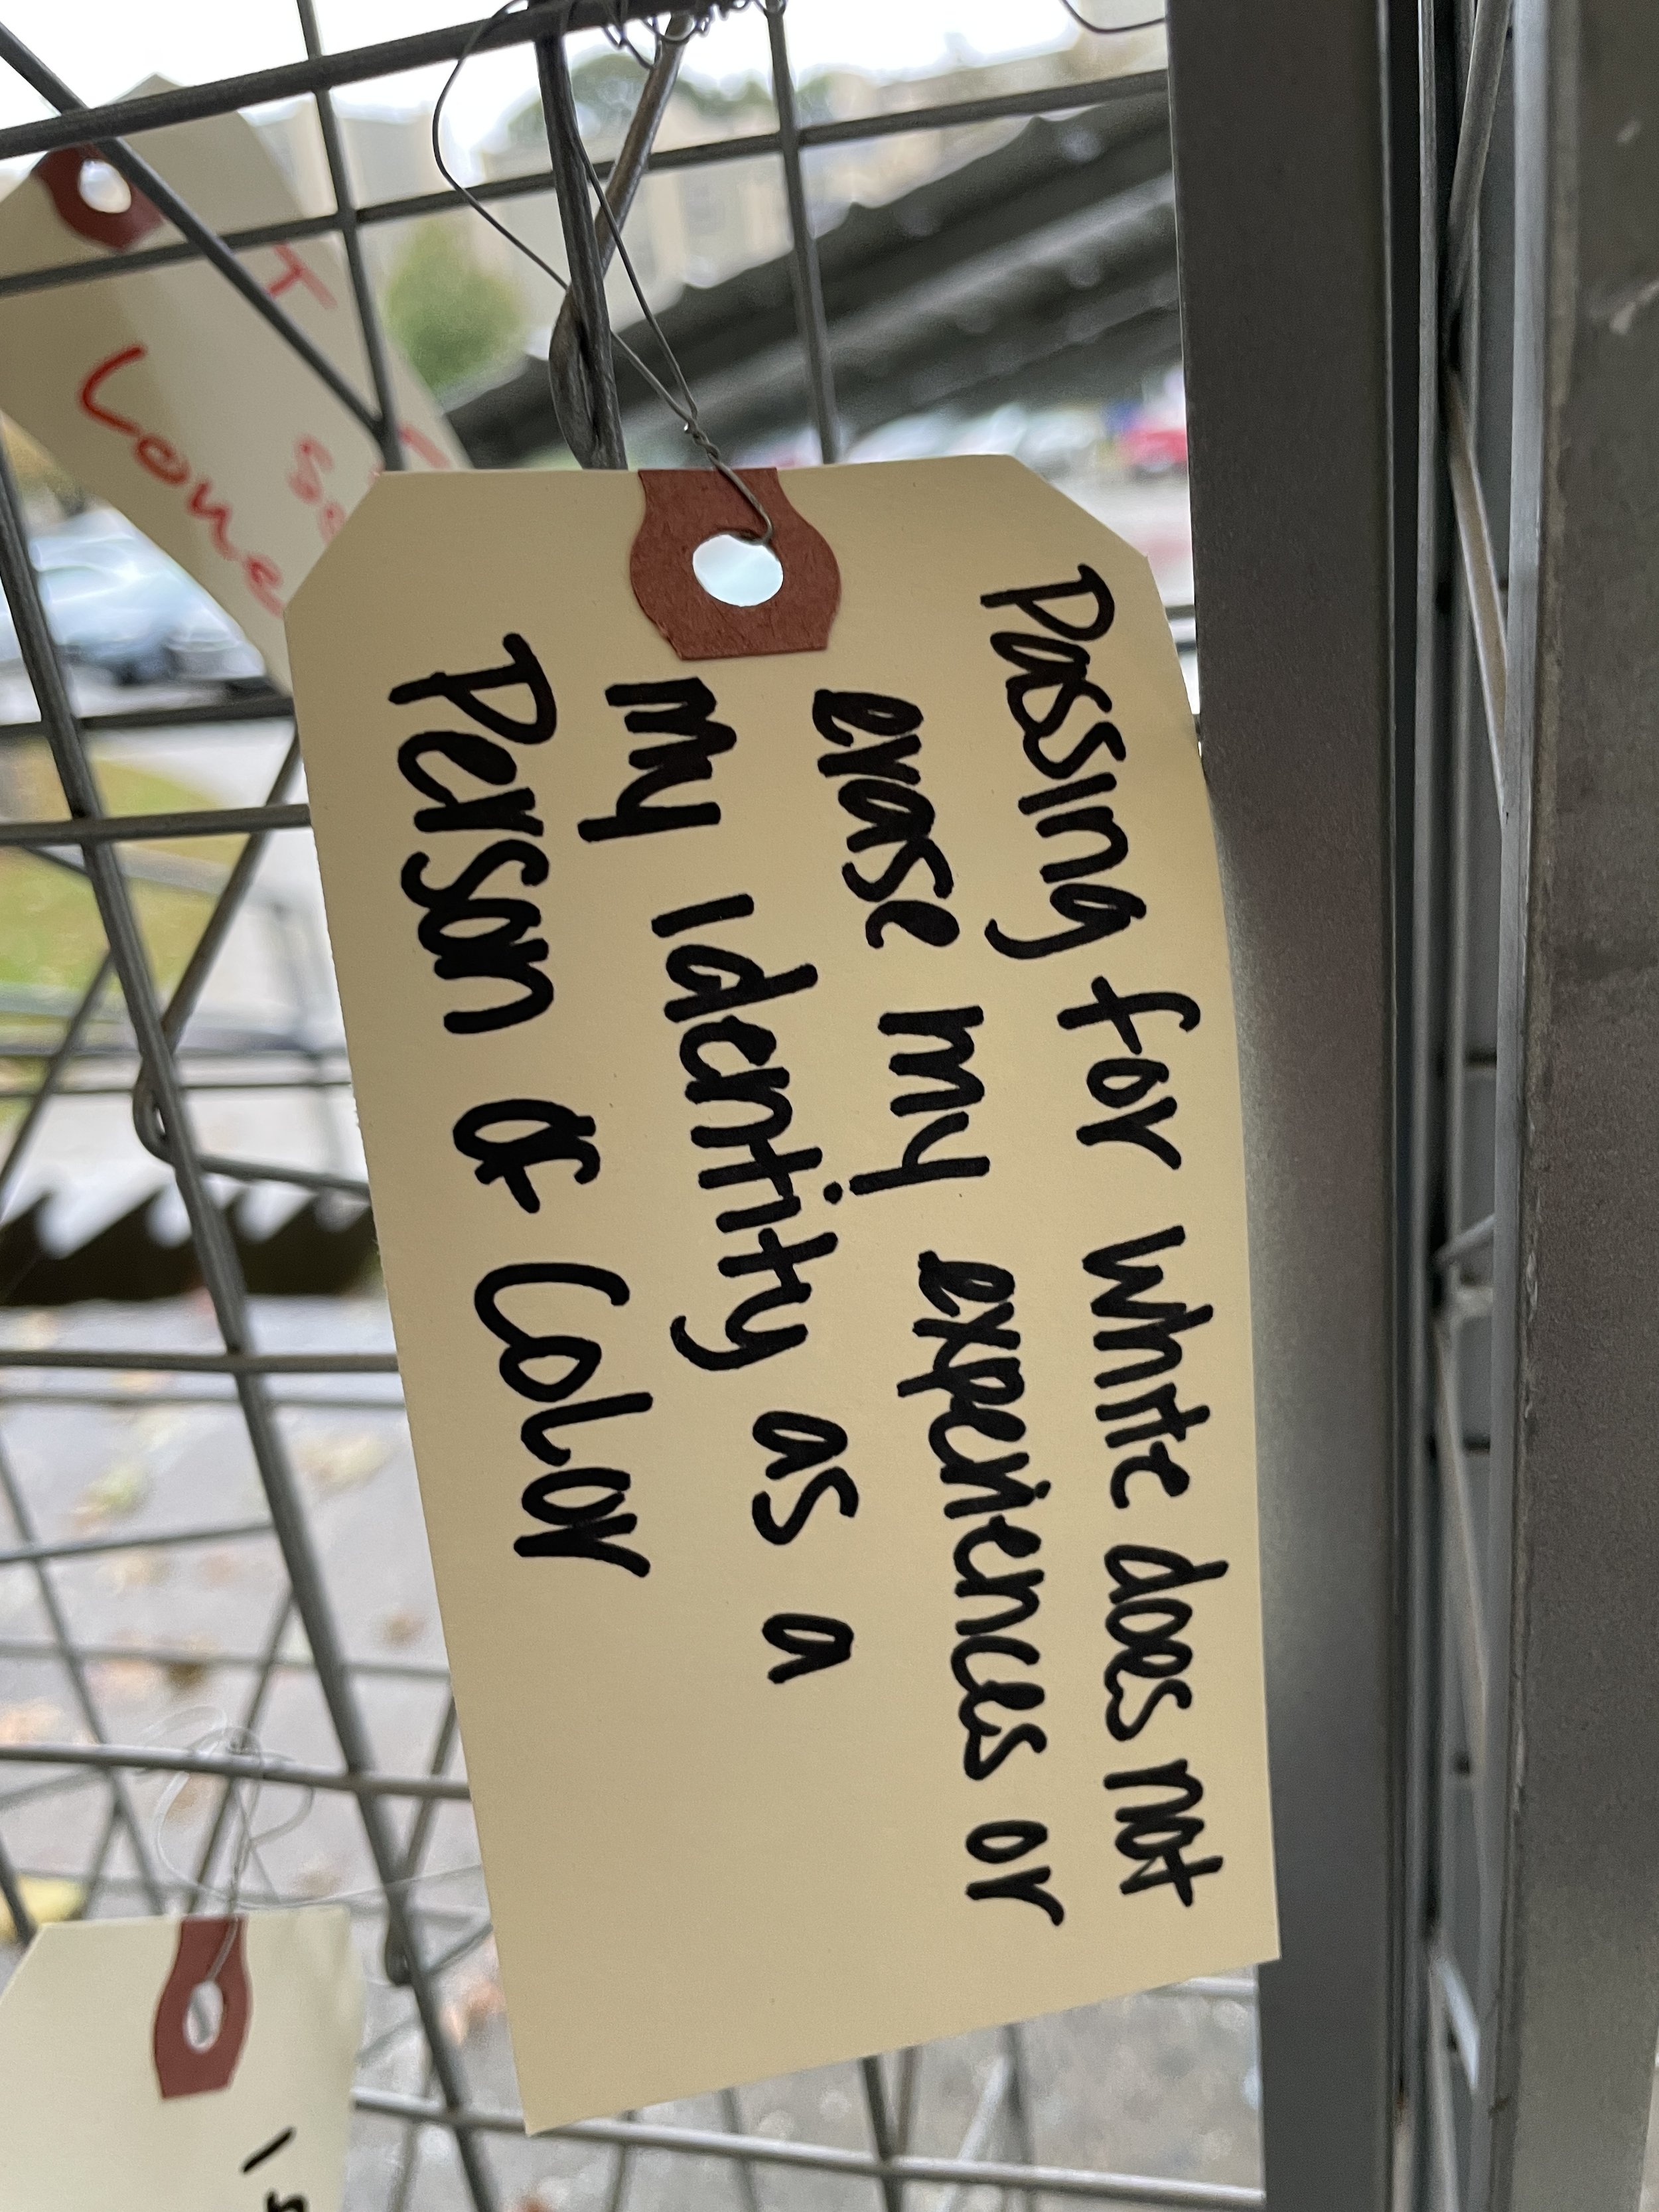 Passing for white does not
erase my experiences or
my identity as a
Person of Color
Lone